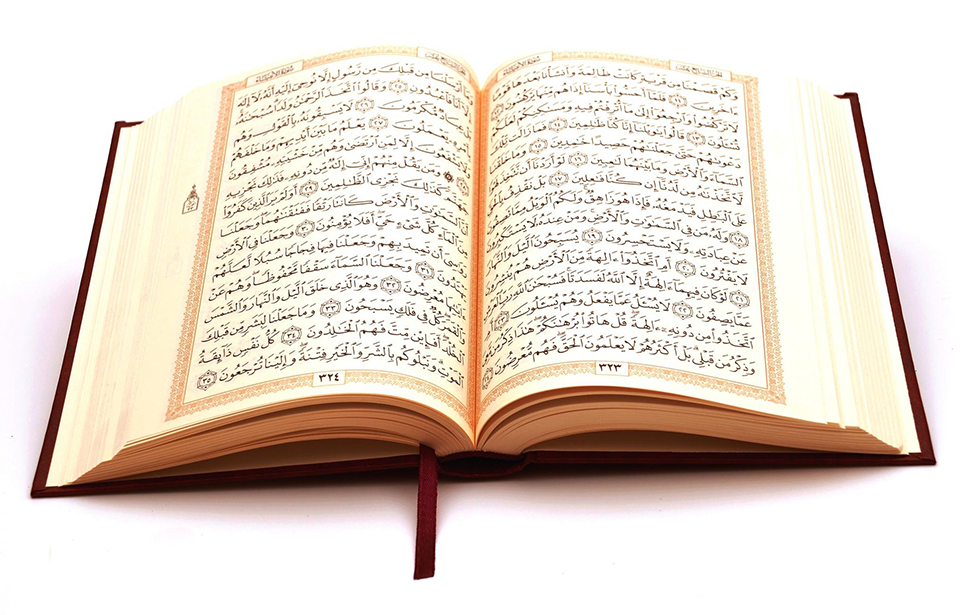 الجزء السابع عشر سورة الأنبياء
وَكَمْ قَصَمْنَا مِن قَرْيَةٍ كَانَتْ ظَالِمَةً وَأَنشَأْنَا بَعْدَهَا قَوْمًا
ءَاخَرِينَ ١١ فَلَمَّآ أَحَسُّوا۟ بَأْسَنَآ إِذَا هُم مِّنْهَا يَرْكُضُونَ ١٢
لَا تَرْكُضُوا۟ وَٱرْجِعُوٓا۟ إِلَىٰ مَآ أُتْرِفْتُمْ فِيهِ وَمَسَٰكِنِكُمْ لَعَلَّكُمْ
تُسْـَٔلُونَ ١٣ قَالُوا۟ يَٰوَيْلَنَآ إِنَّا كُنَّا ظَٰلِمِينَ ١٤ فَمَا زَالَت تِّلْكَ
دَعْوَىٰهُمْ حَتَّىٰ جَعَلْنَٰهُمْ حَصِيدًا خَٰمِدِينَ ١٥ وَمَا خَلَقْنَا
ٱلسَّمَآءَ وَٱلْأَرْضَ وَمَا بَيْنَهُمَا لَٰعِبِينَ ١٦ لَوْ أَرَدْنَآ أَن نَّتَّخِذَ لَهْوًا
لَّٱتَّخَذْنَٰهُ مِن لَّدُنَّآ إِن كُنَّا فَٰعِلِينَ ١٧ بَلْ نَقْذِفُ بِٱلْحَقِّ
عَلَى ٱلْبَٰطِلِ فَيَدْمَغُهُۥ فَإِذَا هُوَ زَاهِقٌ وَلَكُمُ ٱلْوَيْلُ مِمَّا تَصِفُونَ
١٨ وَلَهُۥ مَن فِى ٱلسَّمَٰوَٰتِ وَٱلْأَرْضِ وَمَنْ عِندَهُۥ لَا يَسْتَكْبِرُونَ
عَنْ عِبَادَتِهِۦ وَلَا يَسْتَحْسِرُونَ ١٩ يُسَبِّحُونَ ٱلَّيْلَ وَٱلنَّهَارَ
لَا يَفْتُرُونَ ٢٠ أَمِ ٱتَّخَذُوٓا۟ ءَالِهَةً مِّنَ ٱلْأَرْضِ هُمْ يُنشِرُونَ
٢١ لَوْ كَانَ فِيهِمَآ ءَالِهَةٌ إِلَّا ٱللَّهُ لَفَسَدَتَا فَسُبْحَٰنَ ٱللَّهِ رَبِّ ٱلْعَرْشِ
عَمَّا يَصِفُونَ ٢٢ لَا يُسْـَٔلُ عَمَّا يَفْعَلُ وَهُمْ يُسْـَٔلُونَ ٢٣ أَمِ
ٱتَّخَذُوا۟ مِن دُونِهِۦٓ ءَالِهَةً قُلْ هَاتُوا۟ بُرْهَٰنَكُمْ هَٰذَا ذِكْرُ مَن مَّعِىَ
وَذِكْرُ مَن قَبْلِى بَلْ أَكْثَرُهُمْ لَا يَعْلَمُونَ ٱلْحَقَّ فَهُم مُّعْرِضُونَ ٢٤
٣٢٣
الجزء السابع عشر سورة الأنبياء
وَمَآ أَرْسَلْنَا مِن قَبْلِكَ مِن رَّسُولٍ إِلَّا نُوحِىٓ إِلَيْهِ أَنَّهُۥ لَآ إِلَٰهَ
إِلَّآ أَنَا۠ فَٱعْبُدُونِ ٢٥ وَقَالُوا۟ ٱتَّخَذَ ٱلرَّحْمَٰنُ وَلَدًا سُبْحَٰنَهُۥ
بَلْ عِبَادٌ مُّكْرَمُونَ ٢٦ لَا يَسْبِقُونَهُۥ بِٱلْقَوْلِ وَهُم
بِأَمْرِهِۦ يَعْمَلُونَ ٢٧ يَعْلَمُ مَا بَيْنَ أَيْدِيهِمْ وَمَا خَلْفَهُمْ
وَلَا يَشْفَعُونَ إِلَّا لِمَنِ ٱرْتَضَىٰ وَهُم مِّنْ خَشْيَتِهِۦ مُشْفِقُونَ
٢٨ وَمَن يَقُلْ مِنْهُمْ إِنِّىٓ إِلَٰهٌ مِّن دُونِهِۦ فَذَٰلِكَ نَجْزِيهِ
جَهَنَّمَ كَذَٰلِكَ نَجْزِى ٱلظَّٰلِمِينَ ٢٩ أَوَلَمْ يَرَ ٱلَّذِينَ كَفَرُوٓا۟
أَنَّ ٱلسَّمَٰوَٰتِ وَٱلْأَرْضَ كَانَتَا رَتْقًا فَفَتَقْنَٰهُمَا وَجَعَلْنَا
مِنَ ٱلْمَآءِ كُلَّ شَىْءٍ حَىٍّ أَفَلَا يُؤْمِنُونَ ٣٠ وَجَعَلْنَا فِى ٱلْأَرْضِ
رَوَٰسِىَ أَن تَمِيدَ بِهِمْ وَجَعَلْنَا فِيهَا فِجَاجًا سُبُلًا لَّعَلَّهُمْ
يَهْتَدُونَ ٣١ وَجَعَلْنَا ٱلسَّمَآءَ سَقْفًا مَّحْفُوظًا وَهُمْ عَنْ
ءَايَٰتِهَا مُعْرِضُونَ ٣٢ وَهُوَ ٱلَّذِى خَلَقَ ٱلَّيْلَ وَٱلنَّهَارَ وَٱلشَّمْسَ
وَٱلْقَمَرَ كُلٌّ فِى فَلَكٍ يَسْبَحُونَ ٣٣ وَمَا جَعَلْنَا لِبَشَرٍ مِّن قَبْلِكَ
ٱلْخُلْدَ أَفَإِي۟ن مِّتَّ فَهُمُ ٱلْخَٰلِدُونَ ٣٤ كُلُّ نَفْسٍ ذَآئِقَةُ
ٱلْمَوْتِ وَنَبْلُوكُم بِٱلشَّرِّ وَٱلْخَيْرِ فِتْنَةً وَإِلَيْنَا تُرْجَعُونَ ٣٥
٣٢٤